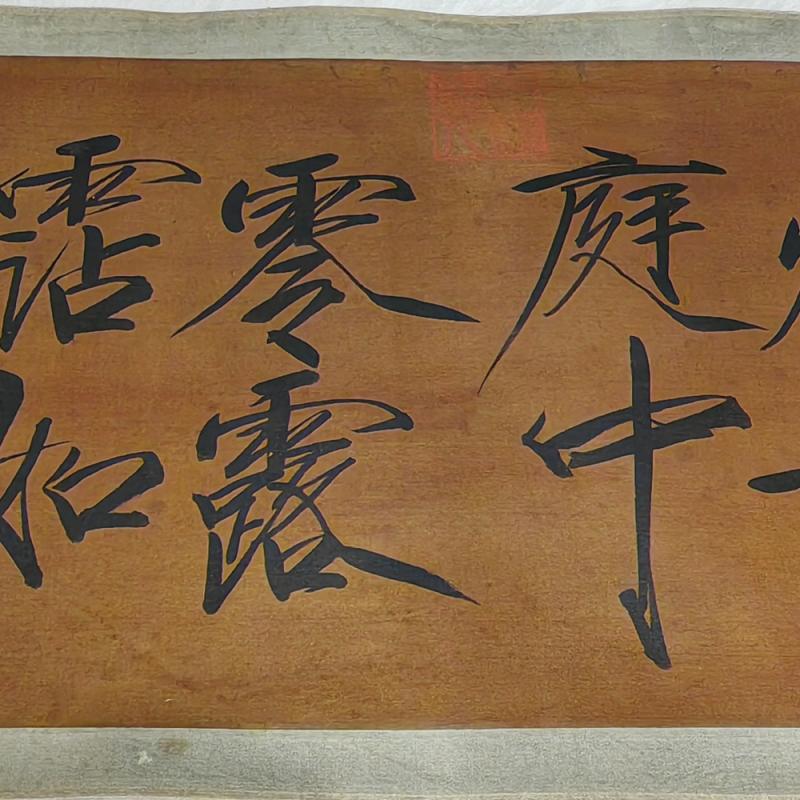 庭中
零露
霑如